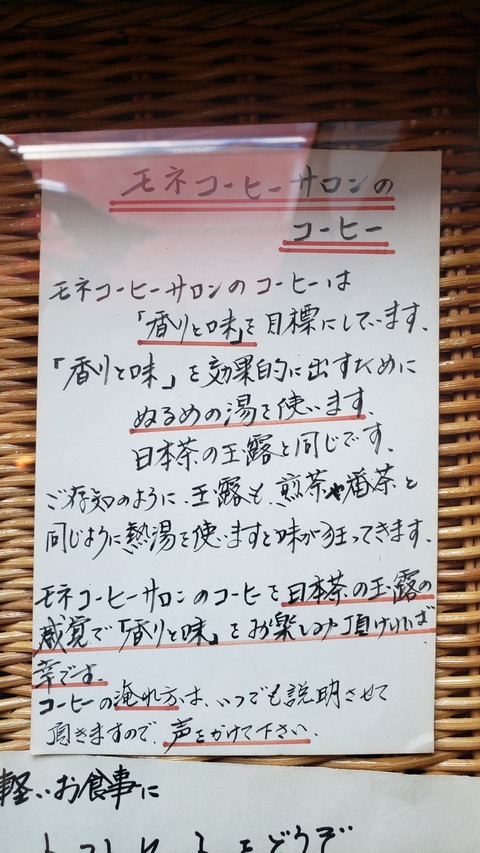 モネコーヒーサロンの
コーヒー
モネコーヒーサロンのコーヒーは
「香りと味」を目標にしています.
「香りと味」を効果的に出すために
ぬるめの湯を使います.
日本茶の玉露と同じです.
ご存知のように、玉露も、煎茶や番茶と
同じように熱湯を使いますと味が狂ってきます.
モネコーヒーサロンのコーヒーを日本茶の玉露の
感覚で「香りと味」をお楽しみ頂ければ
幸です.
コーヒーの淹れ方は、いつでも説明させて
頂きますので、声をかけて下さい.
軽いお食事に
トーストセットをどうぞ